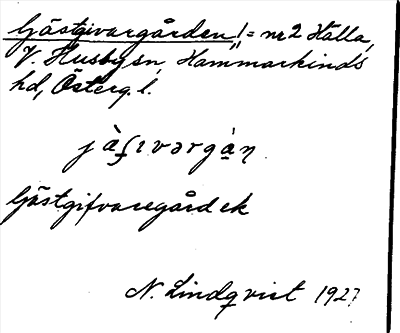 Gästgivargården! = nr 2 Hälla,
V. Husby sn, Hammarkinds
hd, Österg. l.
jὰʃɩvərgὰn
Gästgifvaregård ek
N. Lindqvist 1927